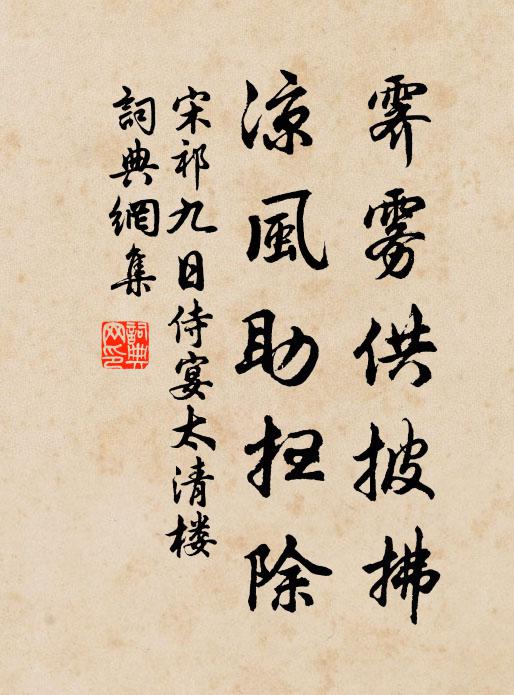 霁雾供披拂
凉風助扫除
宋祁九日侍宴太清楼
詞典網集
詞典
网印